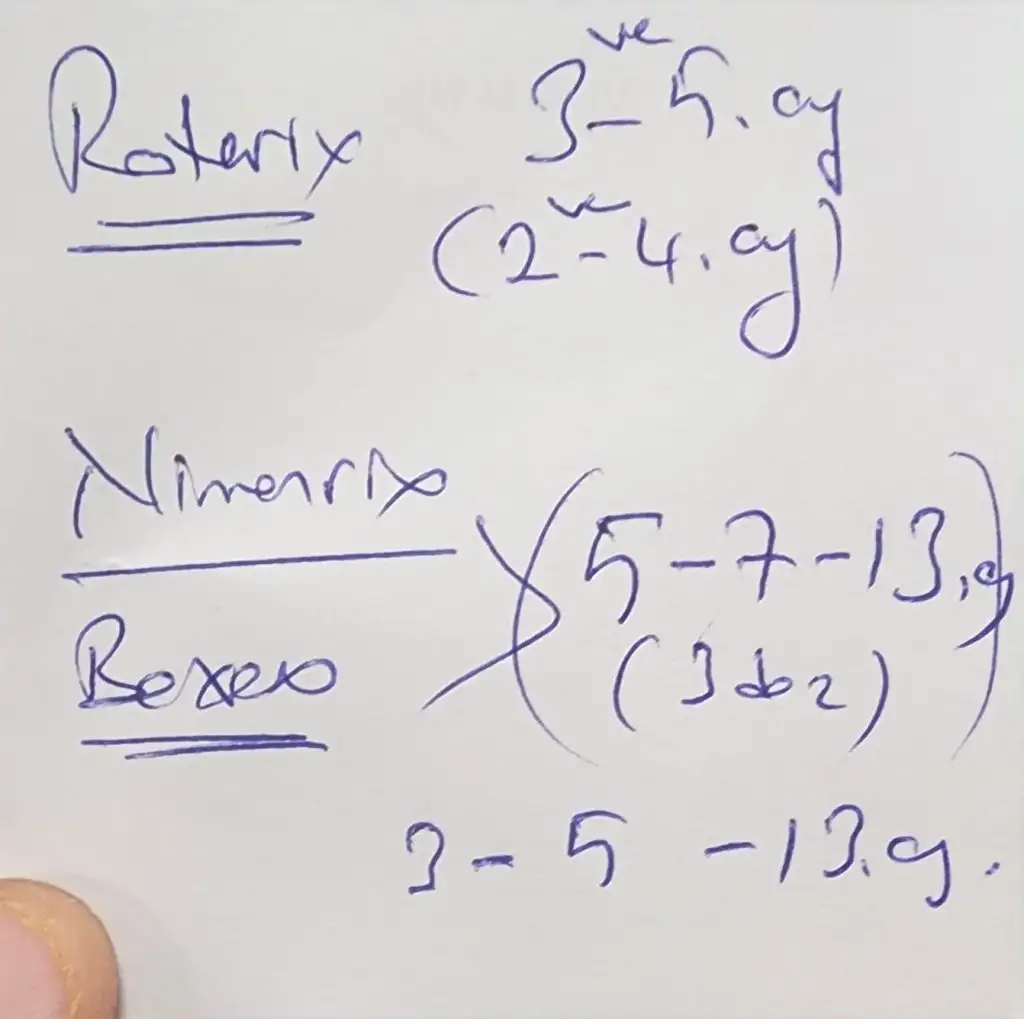 Rotarix 3 ve - 5. ay
(2 ve - 4. ay)
Nimenrix
Bexero
(5 - 7 - 13. ay
(3 doz))
3 - 5 - 13. ay.